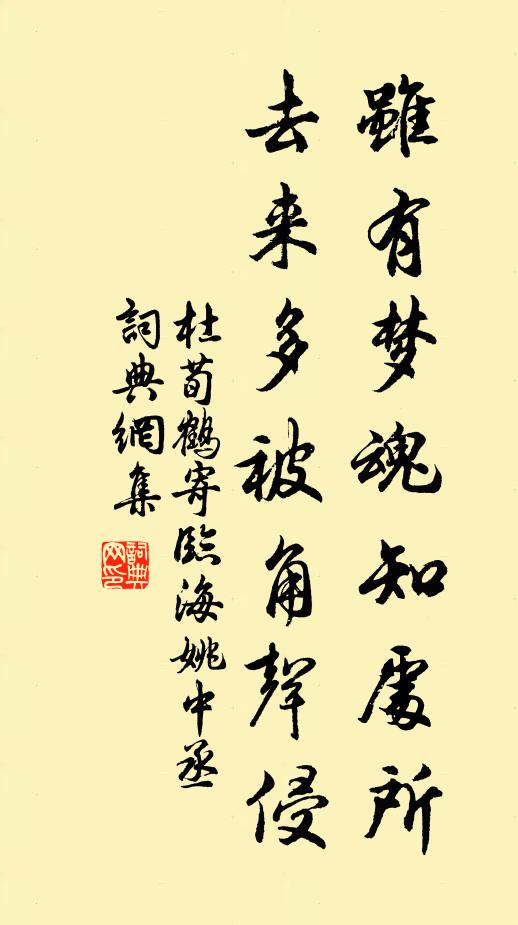 雖有梦魂知處所
去来多被角聲侵
杜荀鶴寄臨海姚中丞
詞典網集
詞典网印